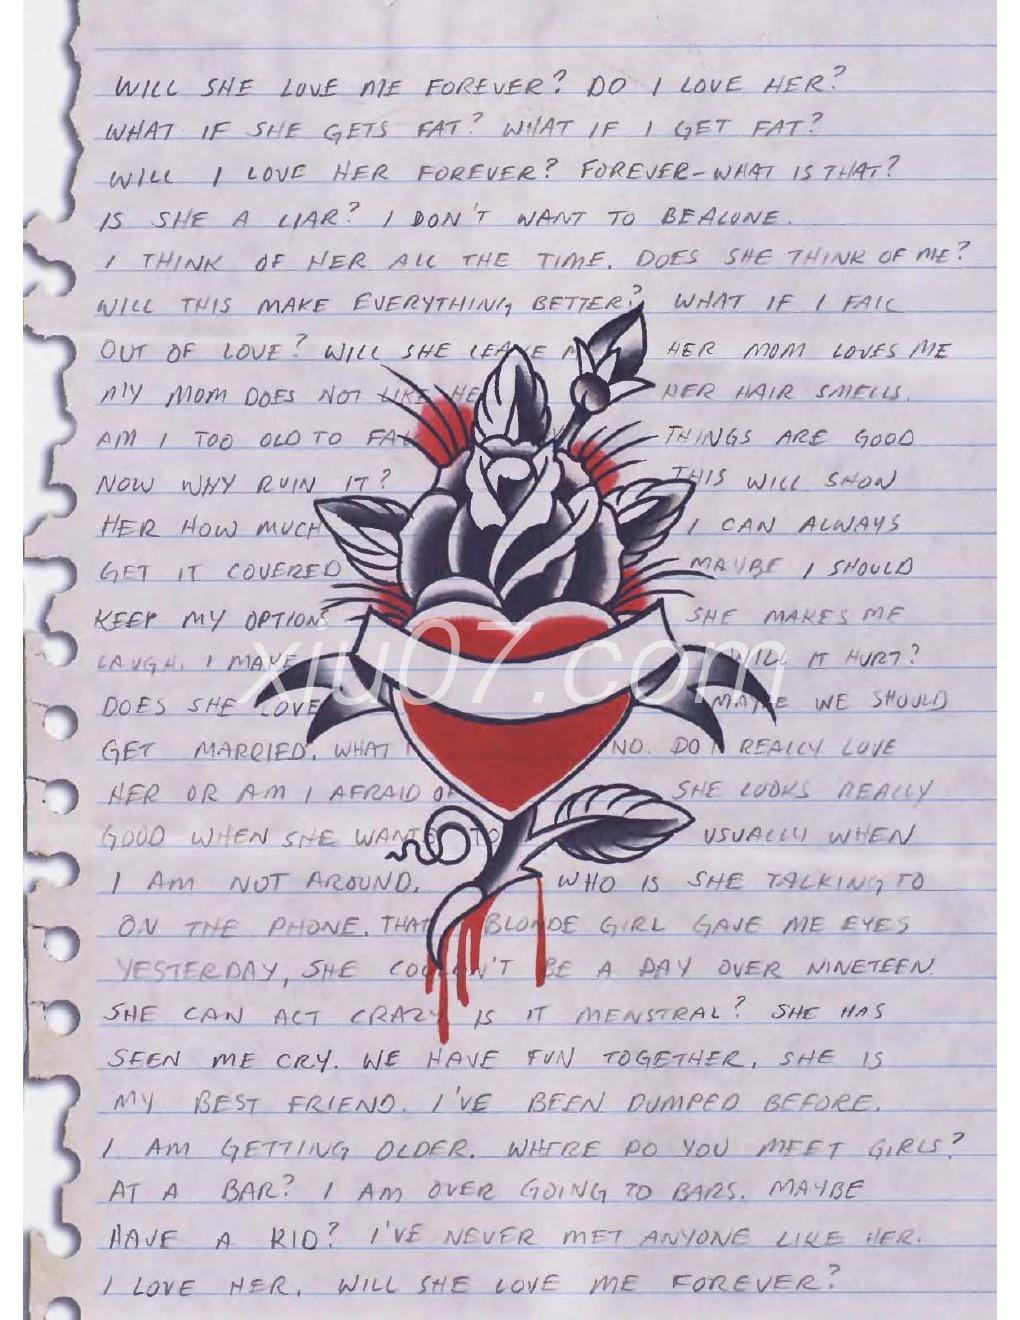 WILL SHE LOVE ME FOREVER? DO I LOVE HER?
WHAT IF SHE GETS FAT? WHAT IF I GET FAT?
WILL I LOVE HER FOREVER? FOREVER-WHAT IS THAT?
IS SHE A LIAR? I DON'T WANT TO BE ALONE.
I THINK OF HER ALL THE TIME. DOES SHE THINK OF ME?
WILL THIS MAKE EVERYTHING BETTER? WHAT IF I FALL
OUT OF LOVE? WILL SHE LEAVE HER MOM LOVES ME
MY MOM DOES NOT LIKE HER HAIR SMELLS.
AM I TOO OLD TO THINGS ARE GOOD
NOW WHY RUIN IT? THIS WILL SHOW
HER HOW MUCH I CAN ALWAYS
GET IT COVERED MAYBE I SHOULD
KEEP MY OPTIONS SHE MAKES ME
LAUGH. I MAKE WILL IT HURT?
xiu07.com
DOES SHE LOVE MAYBE WE SHOULD
GET MARRIED. WHAT NO. DO I REALLY LOVE
HER OR AM I AFRAID SHE LOOKS REALLY
GOOD WHEN SHE WANTS TO USUALLY WHEN
I AM NOT AROUND. WHO IS SHE TALKING TO
ON THE PHONE. THAT BLONDE GIRL GAVE ME EYES
YESTERDAY, SHE COULDN'T BE A DAY OVER NINETEEN.
SHE CAN ACT CRAZY IS IT MENSTRAL? SHE HAS
SEEN ME CRY. WE HAVE FUN TOGETHER. SHE IS
MY BEST FRIEND. I'VE BEEN DUMPED BEFORE.
I AM GETTING OLDER. WHERE DO YOU MEET GIRLS?
AT A BAR? I AM OVER GOING TO BARS. MAYBE
HAVE A KID? I'VE NEVER MET ANYONE LIKE HER.
I LOVE HER. WILL SHE LOVE ME FOREVER?